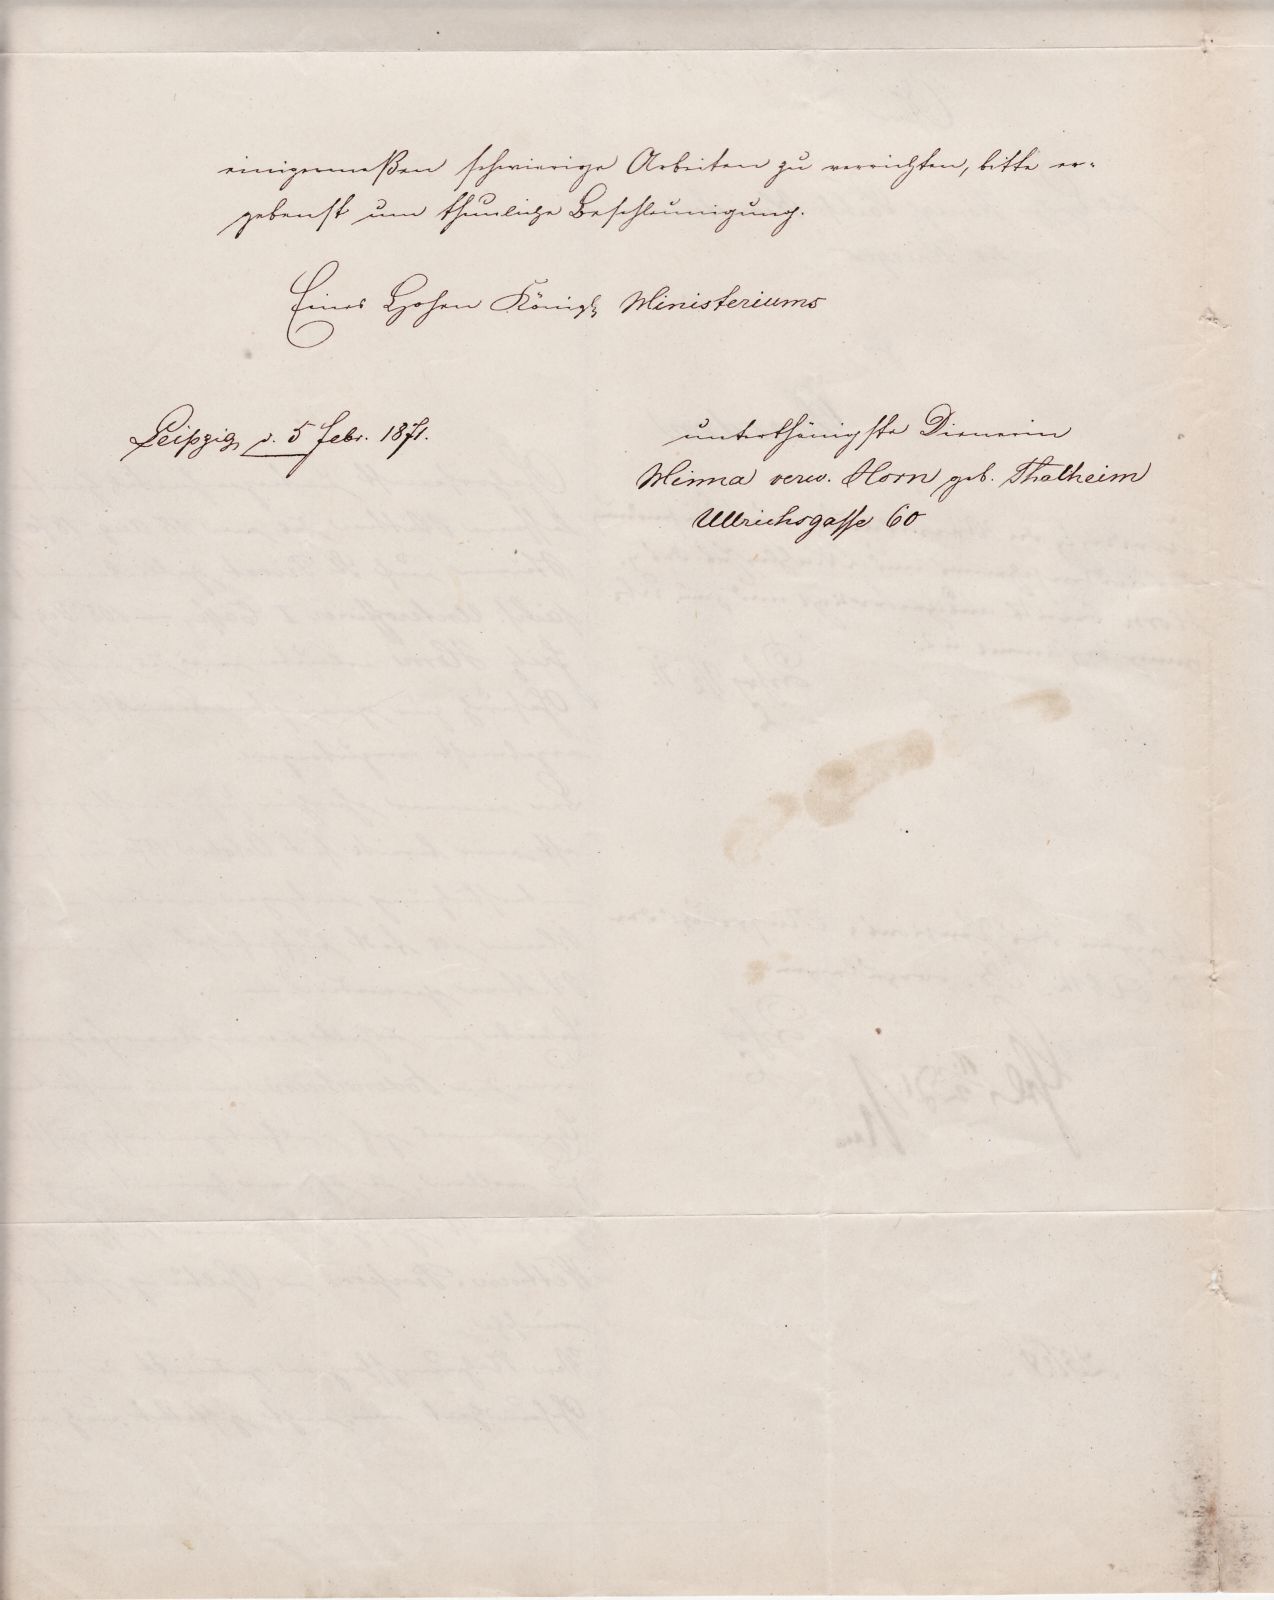 einigermaßen schwierige Arbeiten zu verrichten, bitte er-
gebenst um thunliche Beschleunigung.
Eines Hohen Königl. Ministeriums
Leipzig, d. 5 Febr. 1871.
unterthänigste Dienerin
Minna verw. Horn geb. Thalheim
Ullrichsgasse 60